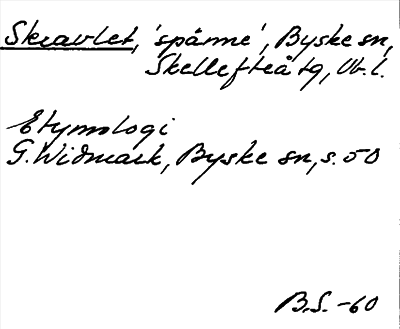 Skravlet, 'spänne', Byske sn,
Skellefteå tg, Vb. l.
Etymologi
G. Widmark, Byske sn, s. 50
B.S. -60